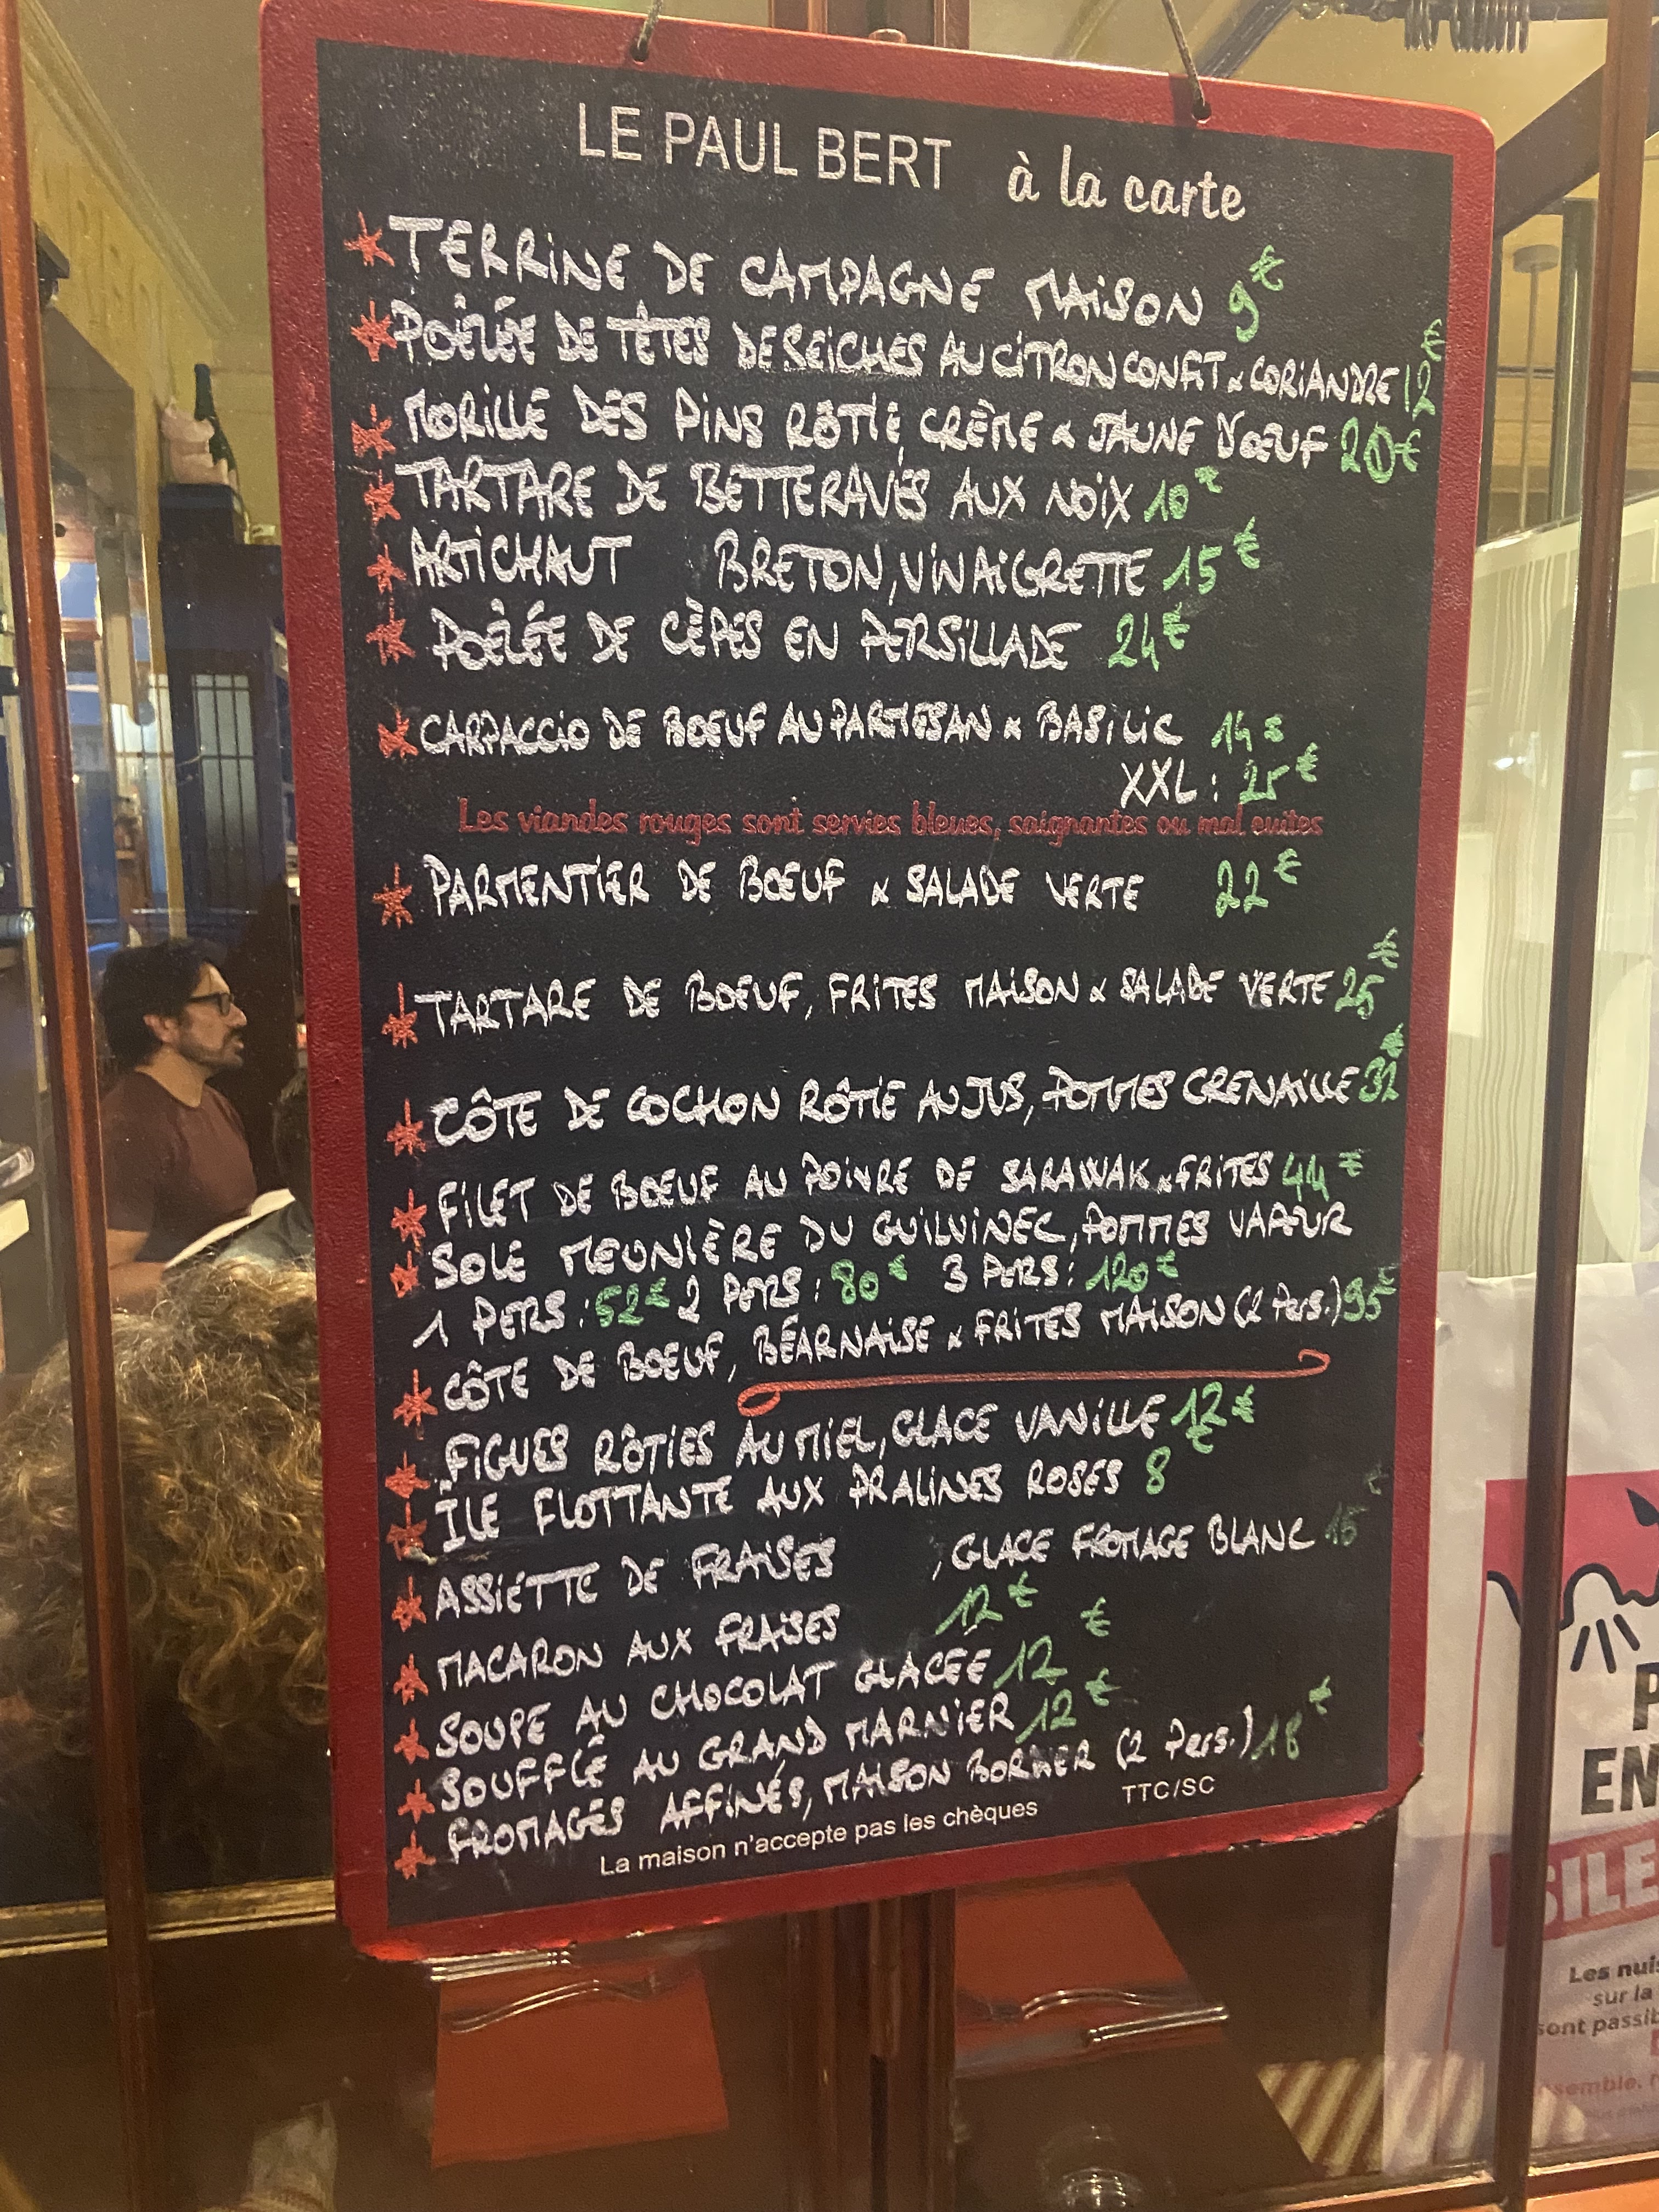 LE PAUL BERT à la carte
TERRINE DE CAMPAGNE MAISON 9€
POÊLÉE DE TÊTES DE SEICHES AU CITRON CONFIT & CORIANDRE 12€
MORILLE DES PINS RÔTIE, CRÈME & JAUNE D'OEUF 20€
TARTARE DE BETTERAVES AUX NOIX 10€
ARTICHAUT BRETON, VINAIGRETTE 15€
POÊLÉE DE CÈPES EN PERSILLADE 24€
CARPACCIO DE BOEUF AU PARMESAN & BASILIC 14€
XXL : 25€
Les viandes rouges sont servies bleues, saignantes ou mal cuites
PARMENTIER DE BOEUF & SALADE VERTE 22€
TARTARE DE BOEUF, FRITES MAISON & SALADE VERTE 25€
CÔTE DE COCHON RÔTIE AU JUS, POMMES GRENAILLE 32€
FILET DE BOEUF AU POIVRE DE SARAWAK & FRITES 44€
SOLE MEUNIÈRE DU GUILVINEC, POMMES VAPEUR
1 PERS : 52€ 2 PERS : 80€ 3 PERS : 120€
CÔTE DE BOEUF, BÉARNAISE & FRITES MAISON (2 Pers.) 95€
FIGUES RÔTIES AU MIEL, GLACE VANILLE 12€
ÎLE FLOTTANTE AUX PRALINES ROSES 8€
ASSIETTE DE FRAISES , GLACE FROMAGE BLANC 15€
MACARON AUX FRAISES 12€
SOUPE AU CHOCOLAT GLACÉE 12€
SOUFFLÉ AU GRAND MARNIER 12€
FROMAGES AFFINÉS, MAISON BORDIER (2 Pers.) 18€
La maison n'accepte pas les chèques TTC/SC
Les
sur la